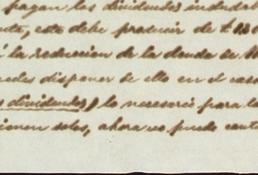 pagan los dividendos
este debe producir de
á la reduccion de la deuda de
disponer de ello en el caso
dividendos, lo necesario para
solos, ahora no puede